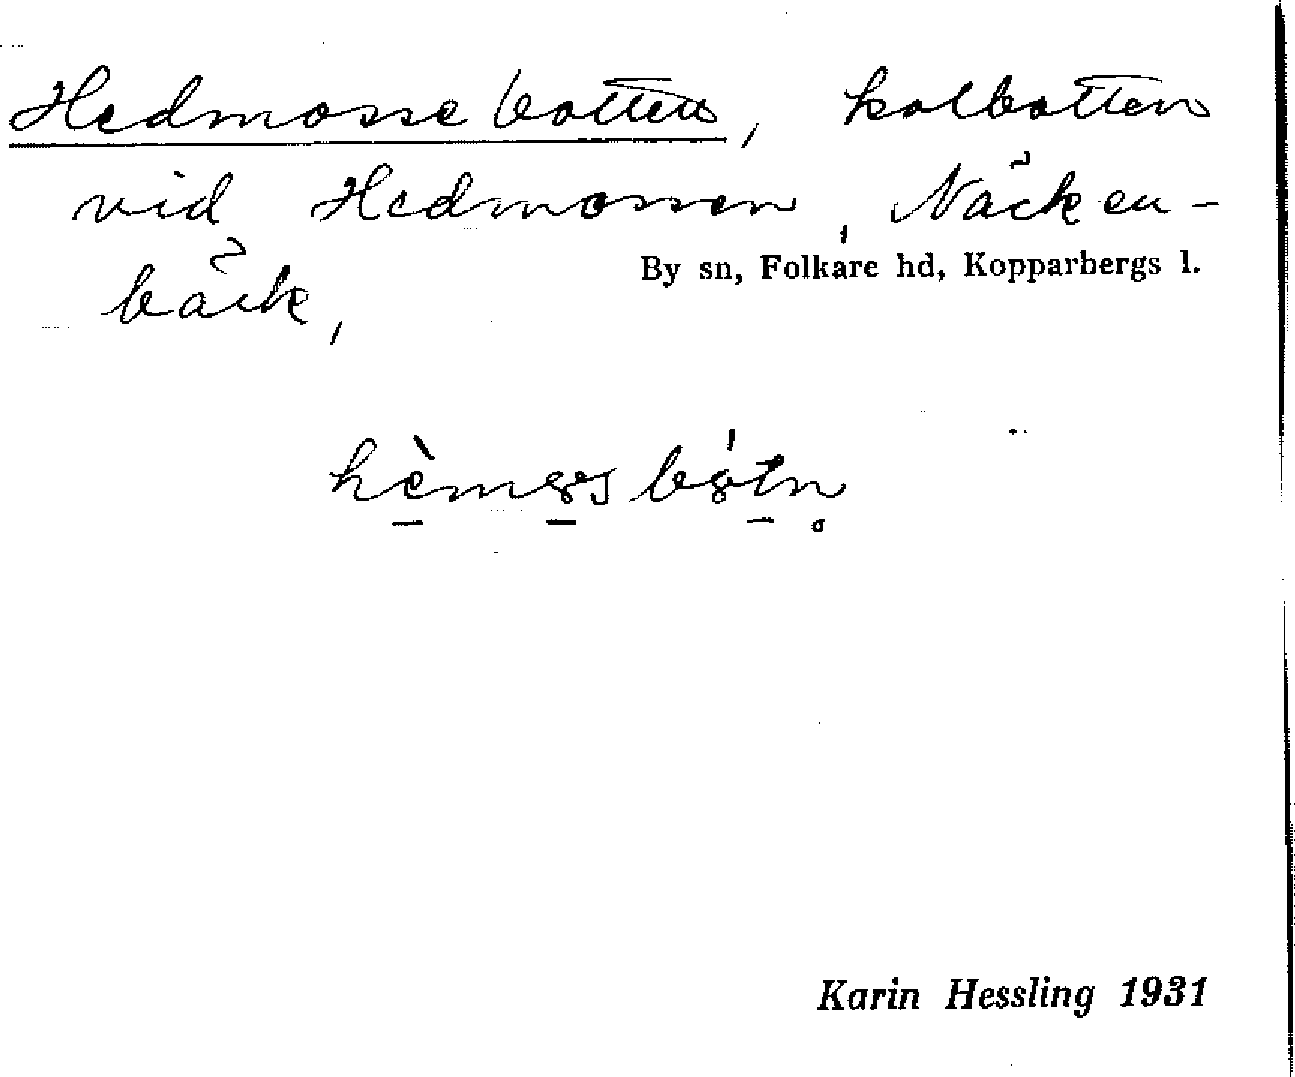 Hedmossebotten, kolbotten
vid Hedmossen, Näcken-
bäck,
By sn, Folkare hd, Kopparbergs l.
Karin Hessling 1931